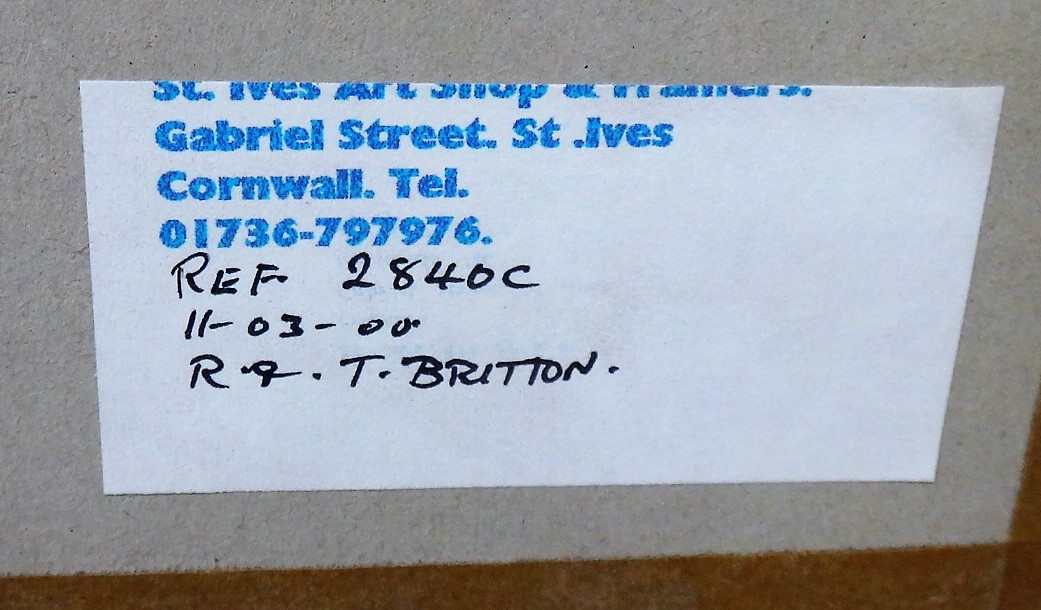 St. Ives Art Shop & Framers.
Gabriel Street. St .Ives
Cornwall. Tel.
01736-797976.
REF 2840C
11-03-00
R.&.T.BRITTON.